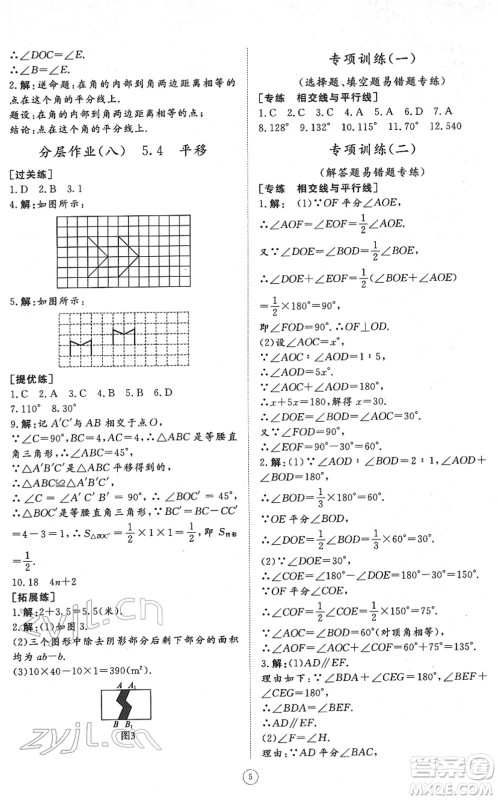 ∴∠DOC=∠E.
∴∠B=∠E.
2.解:逆命题:在角的内部到角两边距离相等的
点在这个角的平分线上.
题设:在角的内部到角两边距离相等的点;
结论:点在这个角的平分线上.
分层作业(八) 5.4 平移
[过关练]
1.D 2.B 3.1
4.解:如图所示:
5.解:如图所示:
[提优练]
1.C 2.D 3.C 4.B 5.A 6.C
7.110° 8.30°
9.解:设A′C′与AB相交于点O,
∵∠C=90°,BC=4,AC=4,∴△ABC是等腰直
角三角形,∴∠ABC=45°.
∵△A′B′C′是△ABC平移得到的,
∴△ABC≌△A′B′C′,∴∠BOC′=45°,
∴△BOC′是等腰直角三角形,∴BC′=OC′
=4-3=1,∴S△BOC′=1/2×1×1=1/2,∴S阴影=
1/2.
10.18 4n+2
[拓展练]
1.解:2+3.5=5.5(米).
2.解:(1)如图3.
(2)三个图形中除去阴影部分后剩下部分的面积
均为ab-b.
(3)10×40-10×1=390(m²).
A A₁
B B₁
图3
专项训练(一)
(选择题、填空题易错题专练)
[专练 相交线与平行线]
1.C 2.C 3.C 4.B 5.D 6.D 7.A
8.128° 9.132° 10.118° 11.77° 12.540
专项训练(二)
(解答题易错题专练)
[专练 相交线与平行线]
1.解:(1)∵OF平分∠AOE,
∴∠AOF=∠EOF=1/2∠AOE.
又∵∠DOE=∠BOD=1/2∠BOE,
∴∠DOE+∠EOF=1/2(∠BOE+∠AOE)
=1/2×180°=90°,
即∠FOD=90°.
(2)设∠AOC=x°,
∵∠AOC:∠AOD=1:5,
∴∠AOD=5x°.
∵∠AOC+∠AOD=180°,
∴x+5x=180,解得x=30.
∴∠DOE=∠BOD=∠AOC=30°.
又∵∠FOD=90°,
∴∠EOF=90°-30°=60°.
2.解:(1)∵∠AOD:∠BOD=2:1,
∠AOD+∠BOD=180°,
∴∠BOD=1/3×180°=60°.
∵OE平分∠BOD,
∴∠DOE=1/2∠BOD=1/2×60°=30°.
(2)∵∠DOE=30°,
∴∠COE=180°-∠DOE=180°-30°=150°.
∵OF平分∠COE,
∴∠COF=1/2∠COE=1/2×150°=75°.
∵∠AOC=∠BOD=60°(对顶角相等),
∴∠AOF=∠AOC+∠COF=60°+75°=135°.
3.解:(1)AD∥EF.
理由如下:∵∠BDA+∠CEG=180°,
∠BDA+∠ADC=180°,
∠CEG+∠FEB=180°,
∴∠ADC+∠FEB=180°.
∴AD∥EF.
(2)∠F=∠H.
理由:∵AD平分∠BAC,
5
zyjl.cn
zyjl.cn
答案圈